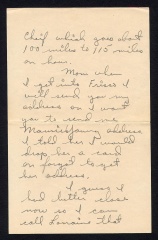 Chief which goes about
100 miles to 110 miles
an hour.
Mom when
I get into Frisco I
will send you my
address or I want
you to send me
address
I told her I would
drop her a card
an forgot to get
her address.
I guess I
had better close
now so I can
call Lorraine that